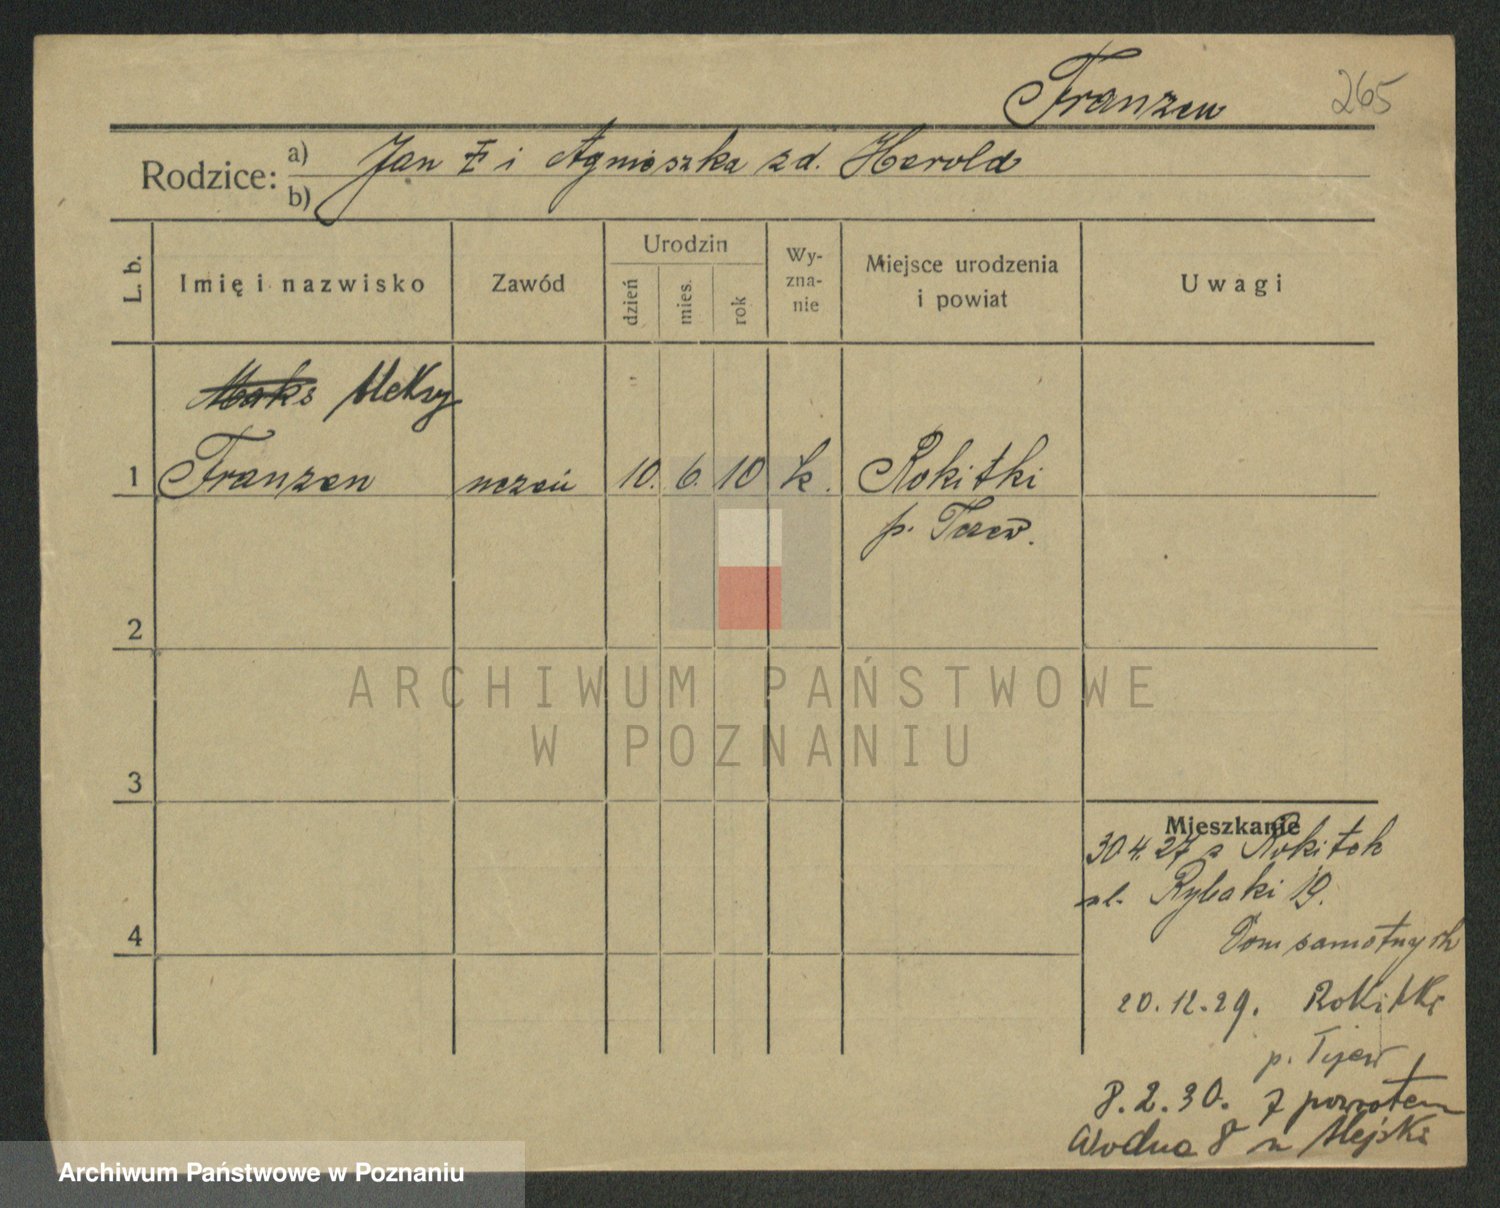 Franzen
265
Rodzice:
a) Jan F. i Agnieszka zd. Herold
b)
L. b.
Imię i nazwisko
Zawód
Urodzin
dzień
mies.
rok
Wy-
zna-
nie
Miejsce urodzenia
i powiat
Uwagi
Maks
1 Franzen uczeń 10. 6. 10 k. Rokitki
p. Tczew.
2
3
4
Mieszkanie
30.4.27 z Rokitek
ul. Rybaki 19.
Dom samotnych
20.12.29. Rokitki
p. Tczew
8.2.30. z powrotem
Wodna 8
ARCHIWUM PAŃSTWOWE
W POZNANIU
Archiwum Państwowe w Poznaniu